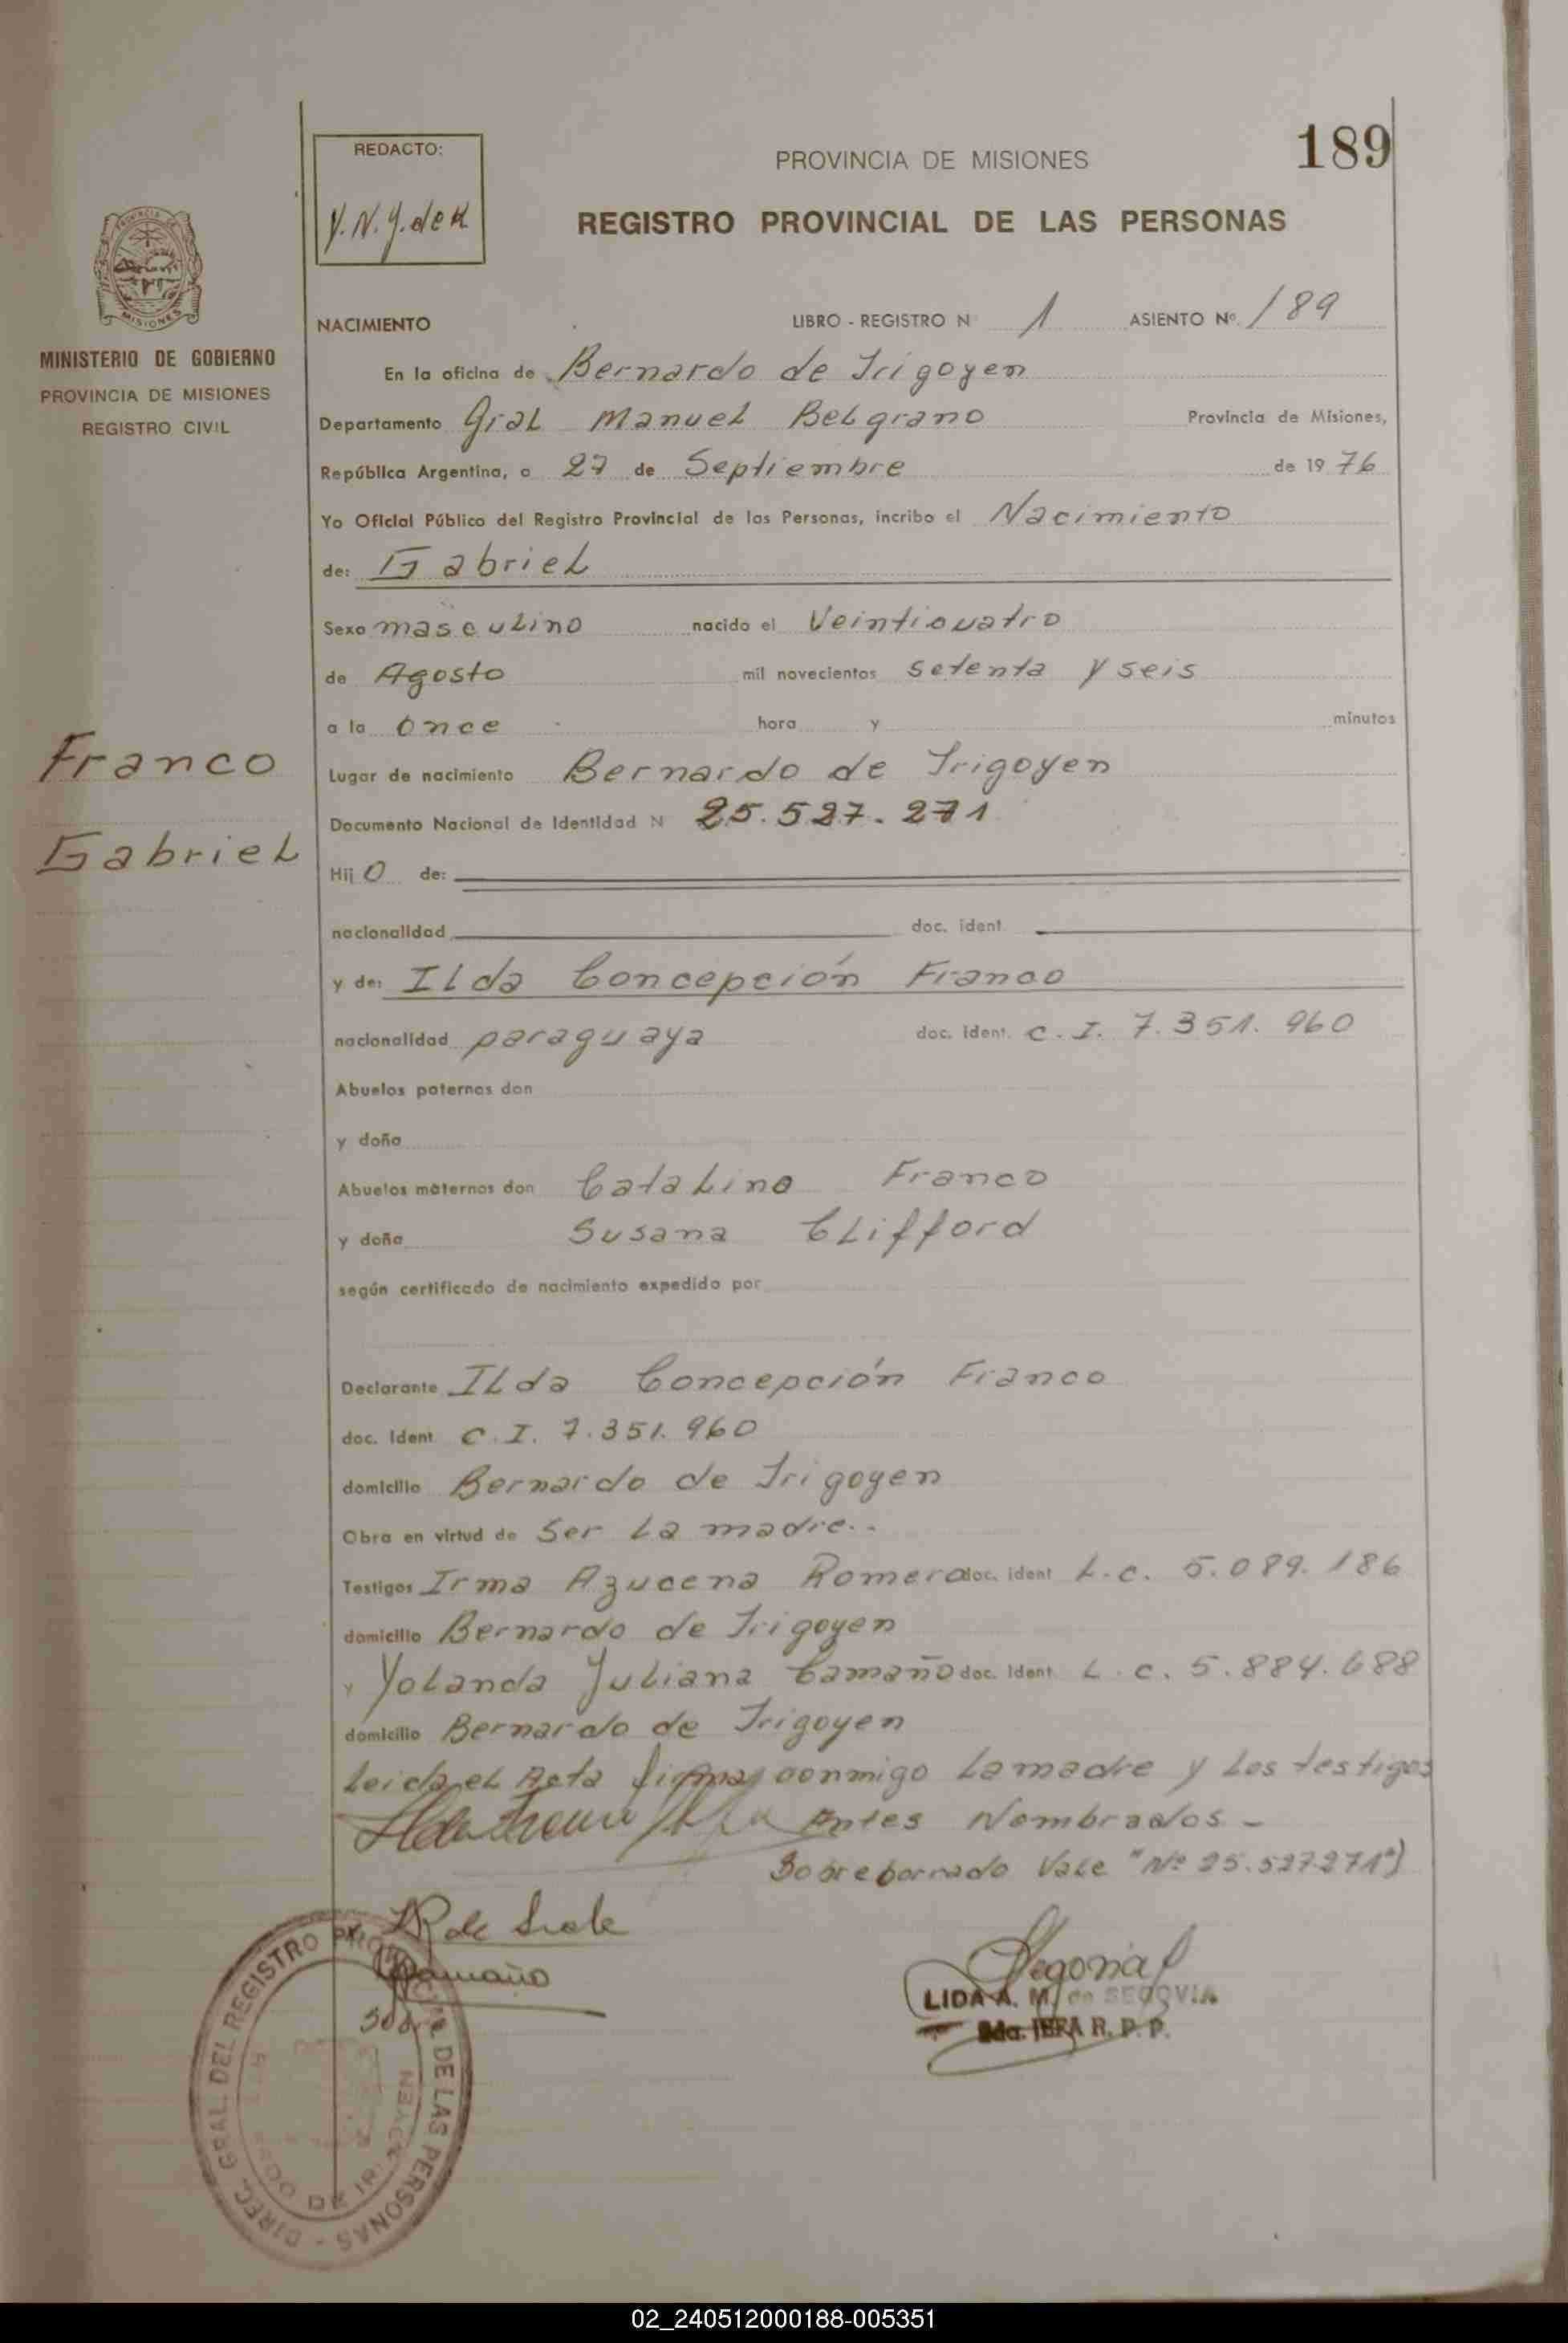 189
REDACTO:
Y.N.Y. de R
PROVINCIA DE MISIONES
REGISTRO PROVINCIAL DE LAS PERSONAS
MISIONES
MINISTERIO DE GOBIERNO
PROVINCIA DE MISIONES
REGISTRO CIVIL
NACIMIENTO LIBRO - REGISTRO N 1 ASIENTO Nº 189
En la oficina de Bernardo de Irigoyen
Departamento Gral Manuel Belgrano Provincia de Misiones,
República Argentina, a 27 de Septiembre de 1976
Yo Oficial Público del Registro Provincial de las Personas, incribo el Nacimiento
de: Gabriel
Sexo masculino nacido el Veinticuatro
de Agosto mil novecientos setenta y seis
a la Once hora y minutos
Franco
Gabriel
Lugar de nacimiento Bernardo de Irigoyen
Documento Nacional de Identidad N 25.527.271
Hij o de:
nacionalidad doc. ident.
y de: Ilda Concepción Franco
nacionalidad paraguaya doc. ident. C.I. 7.351.960
Abuelos paternos don
y doña
Abuelos maternos don Catalino Franco
y doña Susana Clifford
según certificado de nacimiento expedido por
Declarante Ilda Concepción Franco
doc. Ident C.I. 7.351.960
domicilio Bernardo de Irigoyen
Obra en virtud de Ser La madre.-
Testigos Irma Azucena Romero doc. ident L.C. 5.089.186
domicilio Bernardo de Irigoyen
y Yolanda Juliana Camaño doc. Ident L.C. 5.884.688
domicilio Bernardo de Irigoyen
Leida el Acta firma conmigo La madre y Los testigos
Antes Nombrados -
Sobreborrado Vale "Nº 25.527271")
Camaño
Sobre
Segovia
LIDA A. M. de SEGOVIA
2da. JEFA R. P. P.
DIREC. GRAL. DEL REGISTRO PROVINCIAL DE LAS PERSONAS -
DE IRIGOYEN
02_240512000188-005351